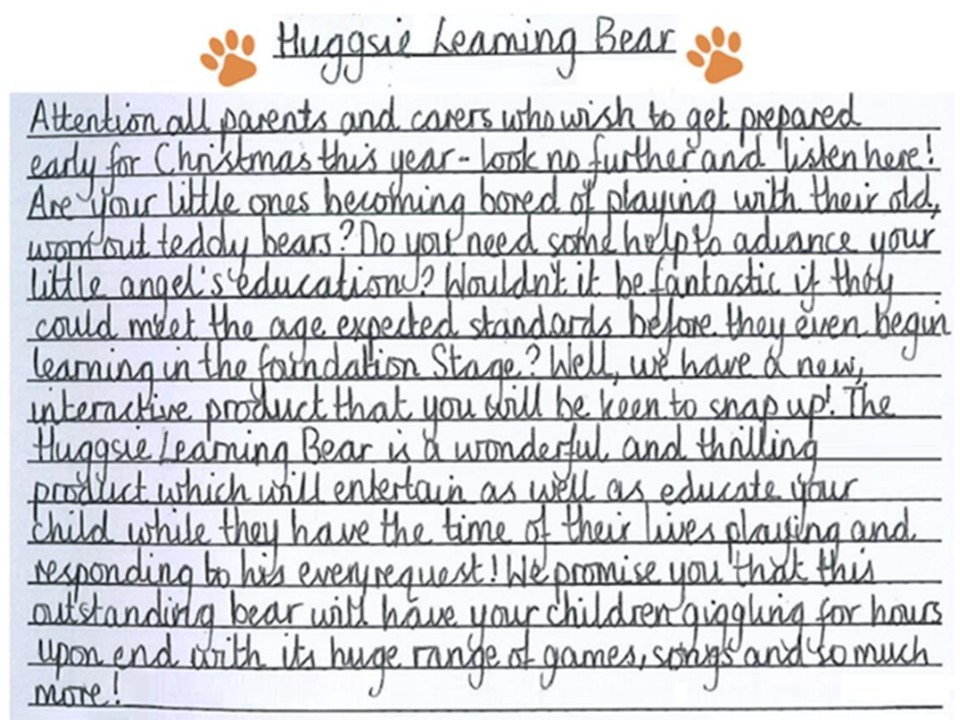 Huggsie Learning Bear
Attention all parents and carers who wish to get prepared
early for Christmas this year - look no further and listen here!
Are your little ones becoming bored of playing with their old,
worn out teddy bears? Do you need some help to advance your
little angel's education? Wouldn't it be fantastic if they
could meet the age expected standards before they even begin
learning in the foundation Stage? Well, we have a new,
interactive product that you will be keen to snap up! The
Huggsie Learning Bear is a wonderful and thrilling
product which will entertain as well as educate your
child while they have the time of their lives playing and
responding to his every request! We promise you that this
outstanding bear will have your children giggling for hours
upon end with its huge range of games, songs and so much
more!